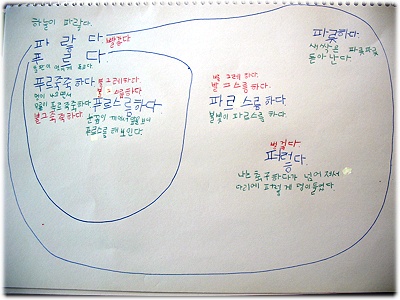 하늘이 파랗다.
파랗다 빨갛다
푸르다
푸르죽죽하다 불그레하다.
불그스름하다
멍이 나으면서
푸르죽죽하다 푸르스름하다
불그죽죽하다
푸르스름해 보인다.
파릇하다.
새싹은 파릇파릇
돋아난다.
불그레하다
발그스름하다.
파르스름하다
불빛이 파르스름하다.
벌겋다
퍼렇다.
나는 축구하다가 넘어져서
다리에 퍼렇게 멍이 들었다.